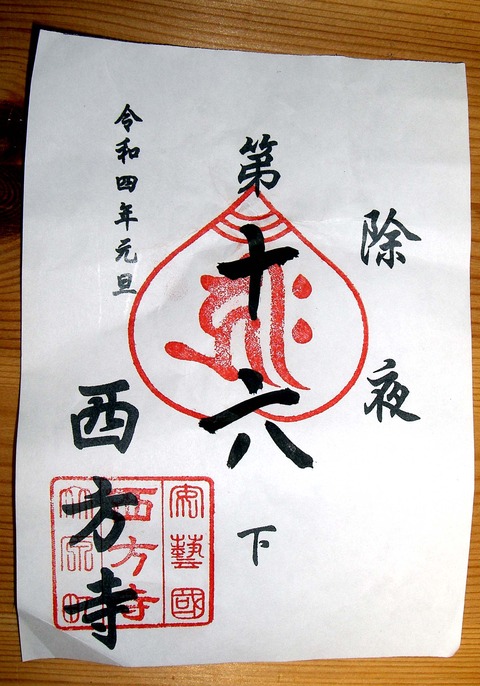 除夜
第十六下
令和四年元旦
西方寺
安藝國
西方寺